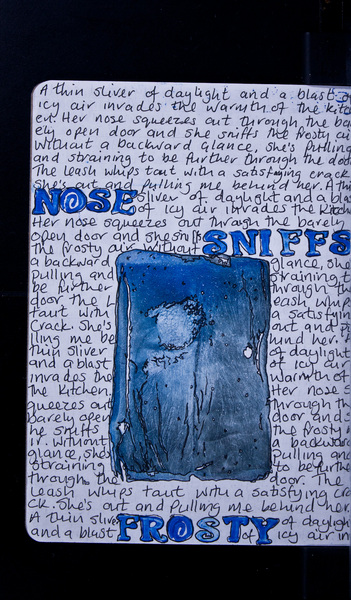 A thin sliver of daylight and a blast of
icy air invades the warmth of the kitch
en. Her nose squeezes out through the bar
ely open door and she sniffs the frosty air
without a backward glance, she's pulling
and straining to be further through the door
The leash whips taut with a satisfying crack.
She's out and pulling me behind her. A thin
NOSE sliver of daylight and a bla
of icy air invades the kitchen
Her nose squeezes out through the barely
open door and she sniffs SNIFFS
the frosty air without
a backward glance, she
pulling and straining t
be further through th
door the l leash whip
taut with satisfyin
crack. She's out and p
lling me be hind her. A
thin sliver of daylight
and a blast of icy air
invades the warmth of
the kitchen. Her nose s
queezes out through th
barely open door and s
he sniffs the frosty
ir. without backward
glance, she's pulling and
straining to be furthe
through the door. The
leash whips taut with a satisfying cra
ck. She's out and pulling me behind her.
A thin slive FROSTY of dayligh
and a blast of icy air in